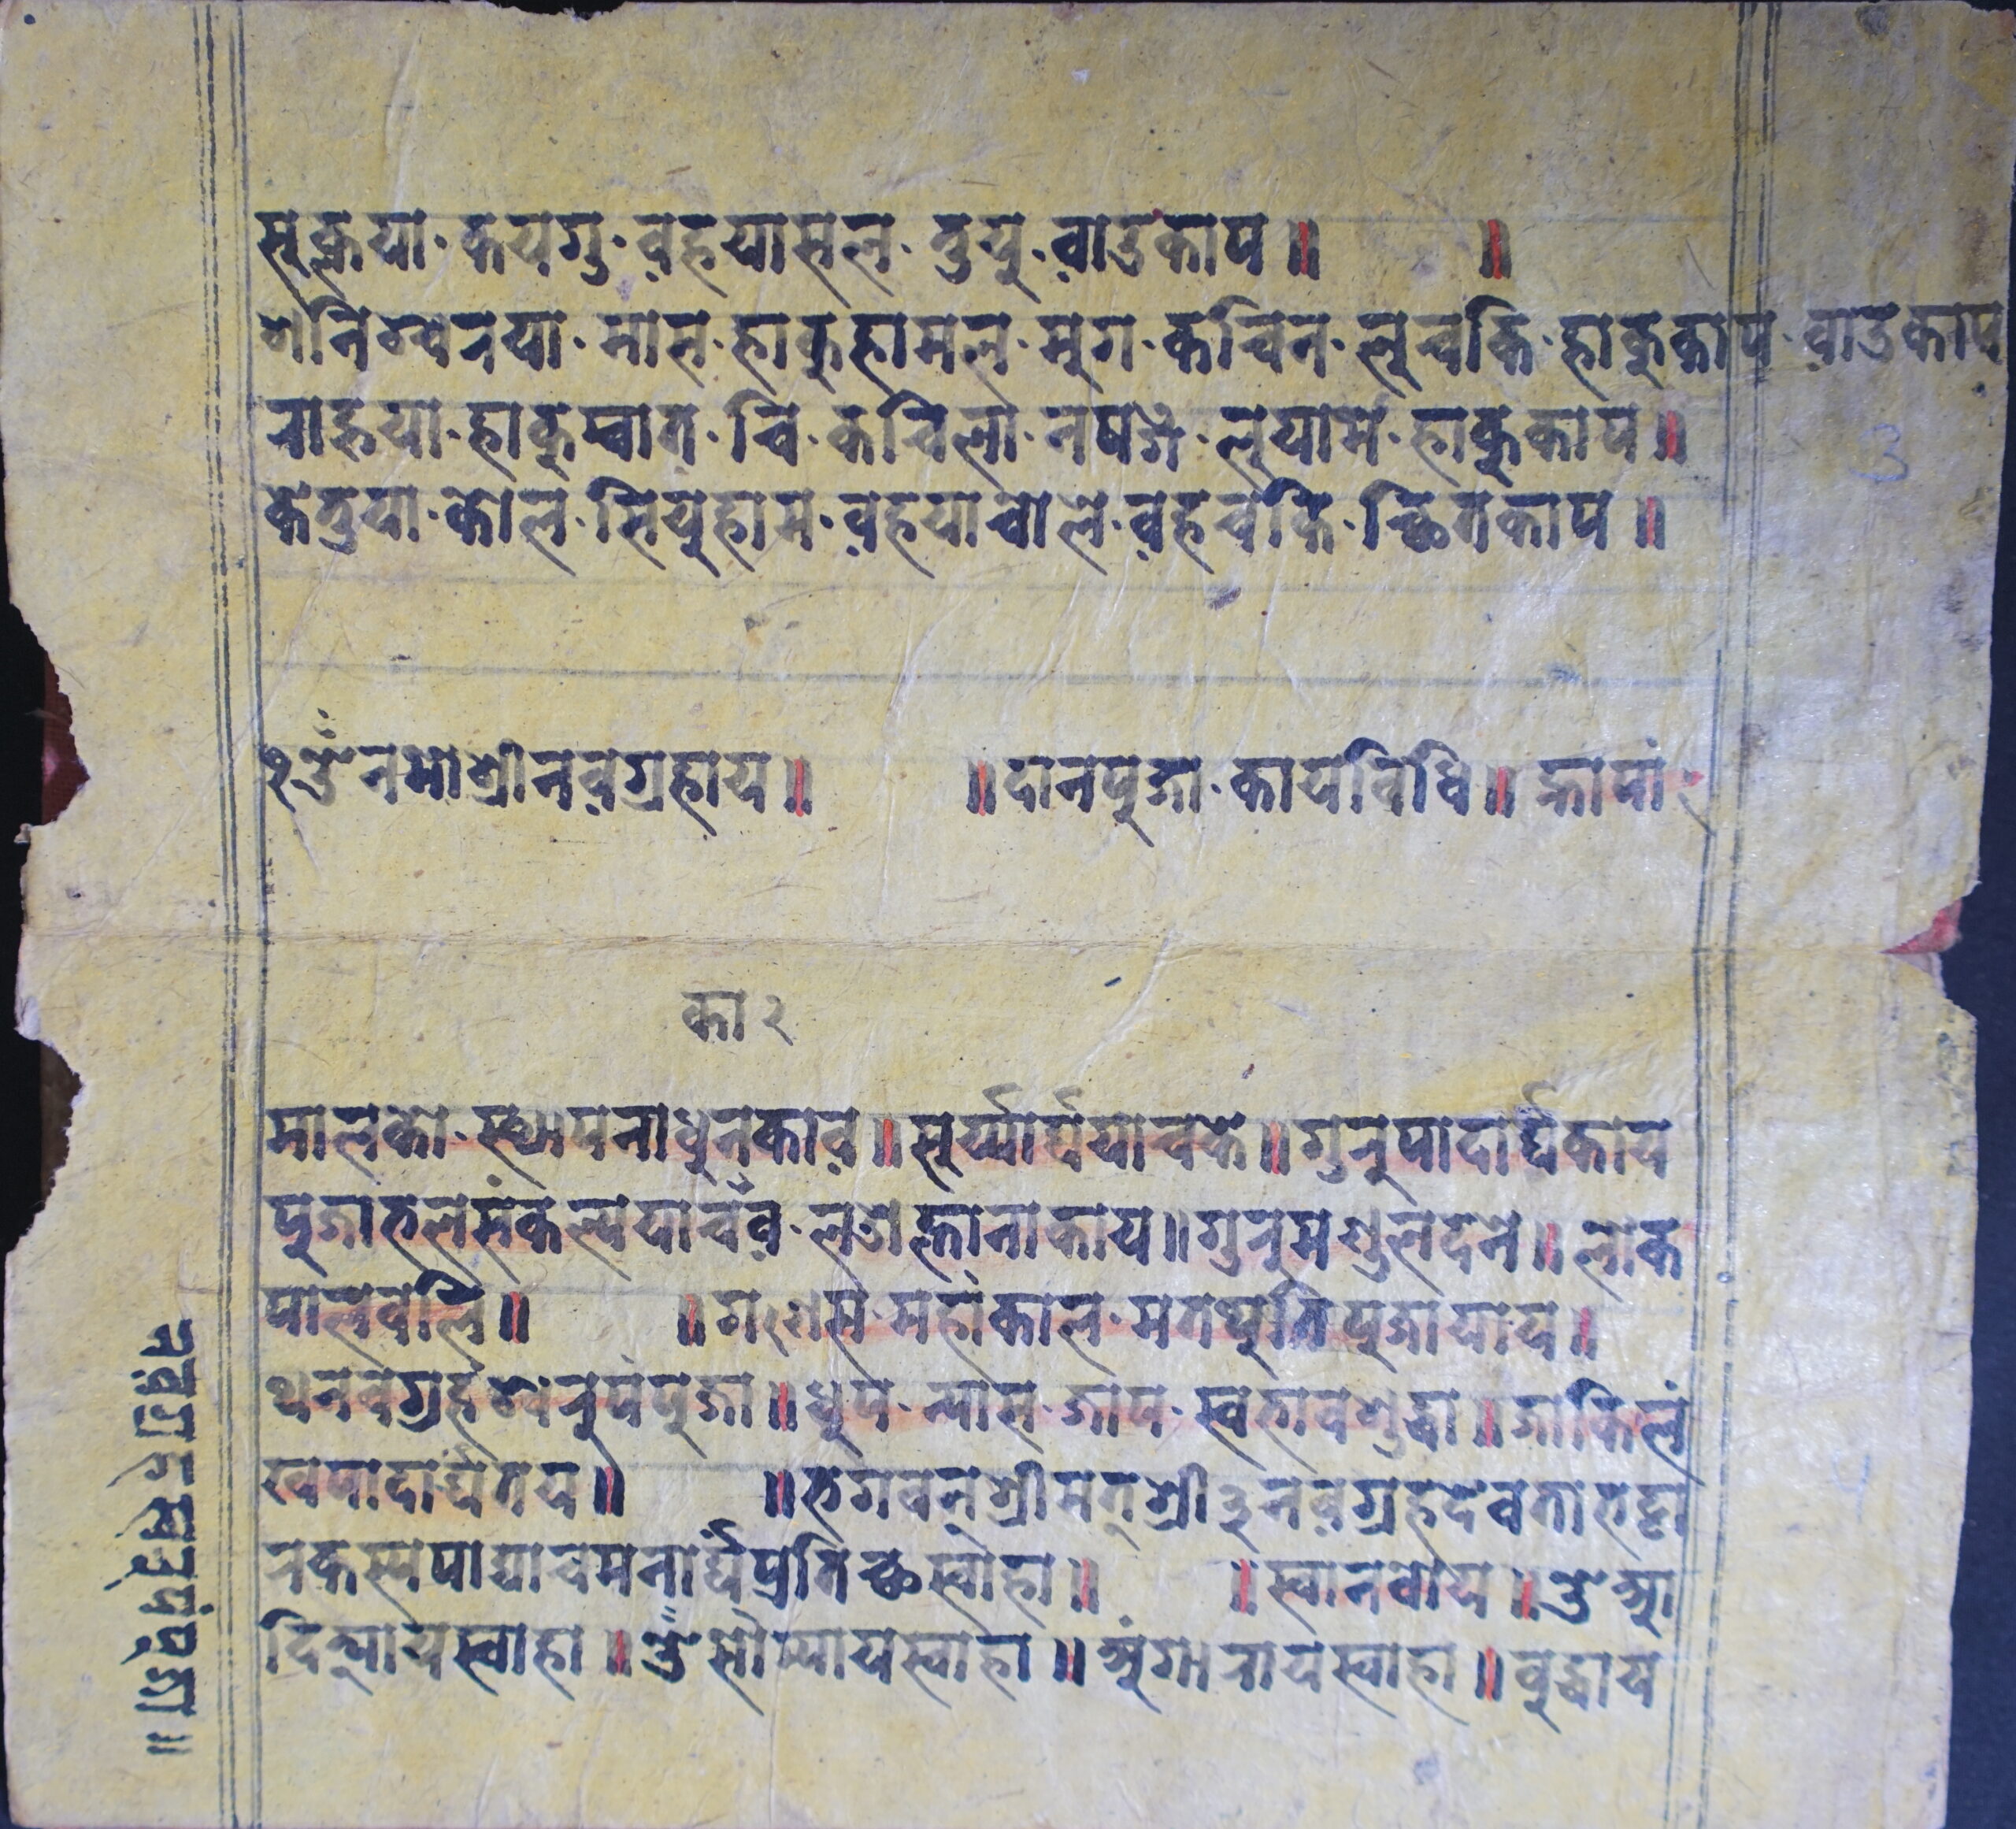 सूक्रया · कयगु · व़हयासल · तुयु · व़ाउकाप॥ ॥
शनिश्चरया · मास · हाकुहामल · मुग · कचिन · लूचकि · हाकुकाप · व़ाउकाप
राहुया · हाकुम्वात · चि · कचिला · नपगे · लूयामे · हाकुकाप॥
केतुया · कोल · सियुहाम · व़हयाचोले · व़हचकि · च्छितकाप॥
१ॐ नमोश्रीनव़ग्रहाय॥ ॥दानपूजा · कायविधि॥ ह्नापां
का २
मालको · स्थापनाधुनकाव़॥सूर्य्यार्घयाचके॥गुरुपादार्घकाय
पूजाभलसंकल्पयाचंव़ · लशह्नानाकाय॥गुरुमण्डलदने॥लोक
पालवलि॥ ॥गणेस · महांकाल · मतपुतिपूजायाय॥
थनवग्रहश्वरूपंपूजा॥धूप · न्यास · जाप · स्वभावशुद्धा॥जाकिलं
खपादार्घतय॥ ॥भगवन्श्रीमत्श्री३नव़ग्रहदेवताभट्टा
रकस्यपाद्याचमनार्घंप्रतिच्छस्वाहा॥ ॥स्वानवोय॥ॐ आ
दित्यायस्वाहा॥ॐ सौम्यायस्वाहा॥अंगारायस्वाहा॥बुद्धाय
नव़ग्रहस्वरूपंपूजा॥